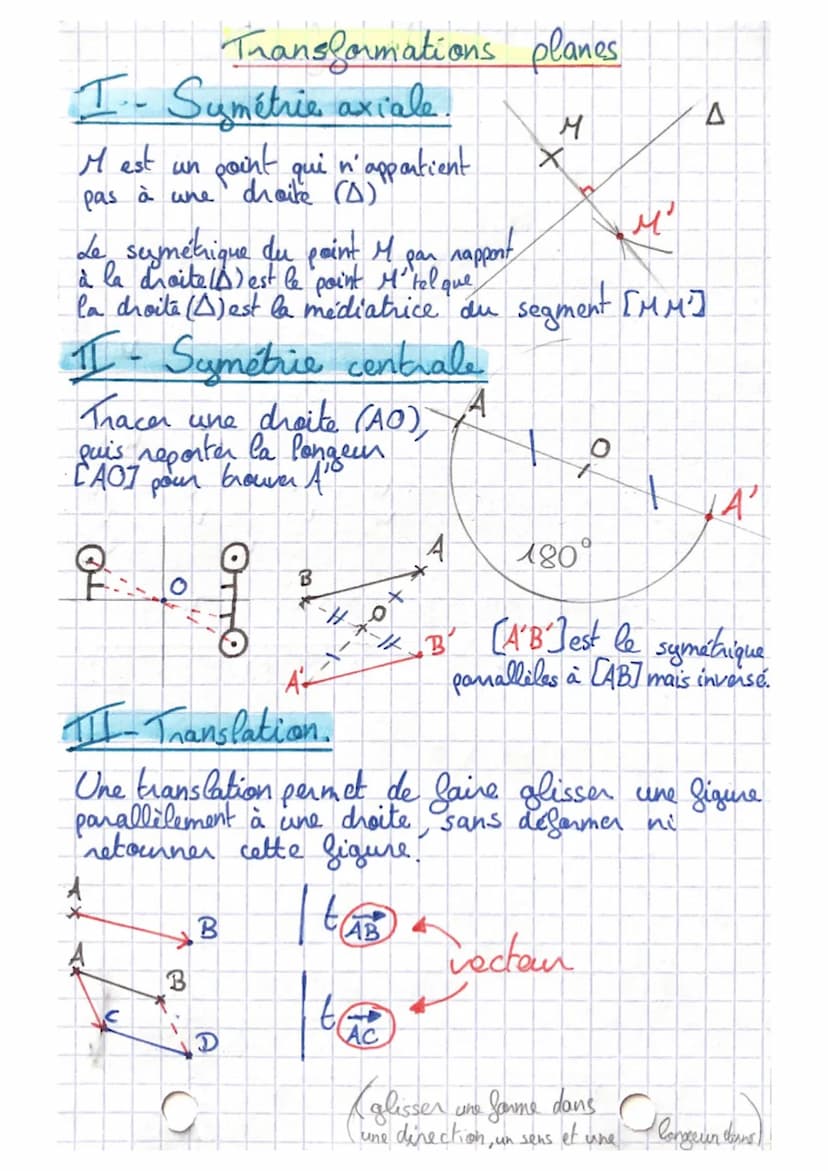 Transformations planes
I - Symétrie axiale.
M
Δ
M est un point qui n'appartient
pas à une droite (Δ)
M'
Le symétrique du point M par rapport
à la droite (Δ) est le point M' tel que
la droite (Δ) est la médiatrice du segment [MM']
II - Symétrie centrale
A
Tracer une droite (AO),
puis reporter la longeur
[AO] pour trouver A'
O
A'
180°
O
B
A
O
A'
B'
[A'B'] est le symétrique
parrallèles à [AB] mais inversé.
III - Translation.
Une translation permet de faire glisser une figure
parallèlement à une droite, sans déformer ni
retourner cette figure.
A
B
t AB
vecteur
A
B
C
D
t AC
(glisser une forme dans
une direction, un sens et une longeur donns)